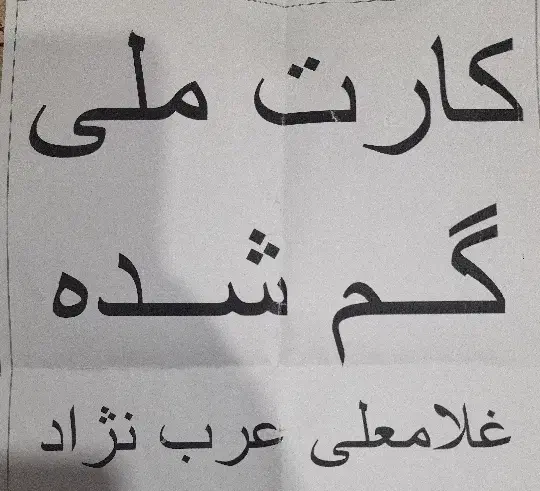 کارت ملی
گم شده
غلامعلی عرب نژاد